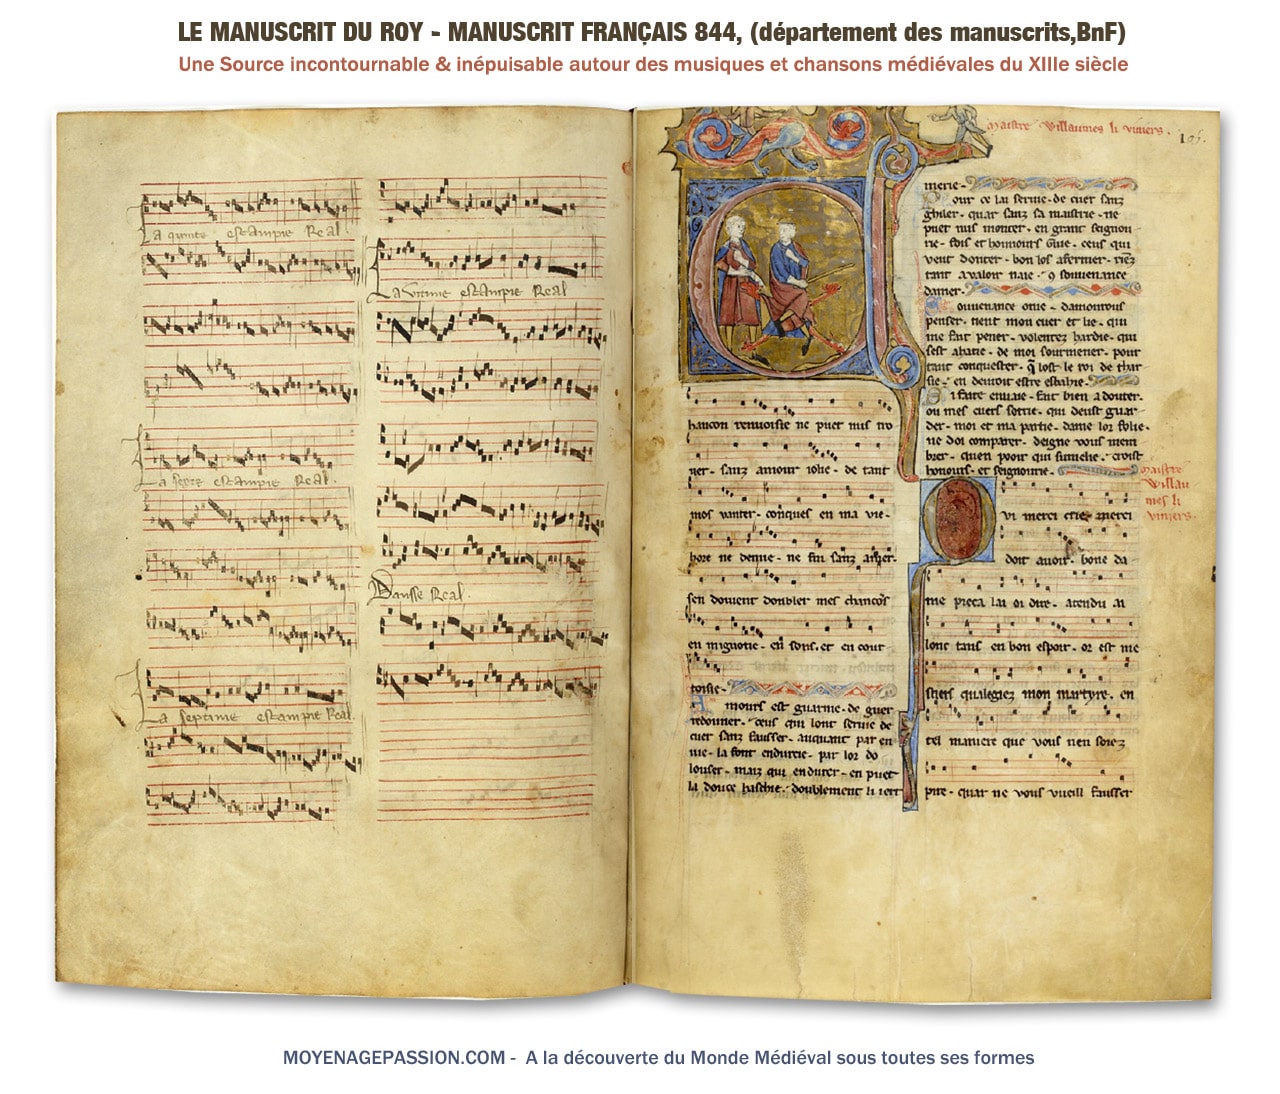 LE MANUSCRIT DU ROY - MANUSCRIT FRANÇAIS 844, (département des manuscrits,BnF)
Une Source incontournable & inépuisable autour des musiques et chansons médiévales du XIIIe siècle
La quinte estampie Real
La sexte estampie Real.
La septime estampie Real.
La uitime estampie Real
Dansse Real.
Maistre Willaumes li viniers.
hancon renuoisie ne puet nus tro
uer. sanz amour iolie. de tant
mos vanter. conques en ma vie.
hore ne deme. ne fui sanz amer.
sen doiuent doubler mes chancos
en mignotie. en sons. et en cour
toisie.
Amours est guarnie. de guer
redouner. ceus qui lont seruie de
cuer sanz fausser. auquant par en
uie. la font endurcie. par lor do
louser. maiz qui endurer. en puet
la douce haschie. doublement li iert
merie.
Pour ce lai seruie. de cuer sanz
ghiler. quar sanz sa maistrie. ne
puet nus monter. en grant seignou
rie. sois et honnours guie. ceus qui
veut donter. bon los afermer. riez
tant a valoir naie. 9 souuenance
damer.
Souuenance onie. damourous
penser. tient mon cuer et lie. qui
me fait pener. volentez hardie. qui
sest ahatie. de moi sourmener. pour
tant conquester. q lost le roi de thar
sie. en deuroit estre esbahie.
Si faite enuaie. fait bien a douter.
ou mes cuers sotrie. qui deust guar
der. moi et ma partie. dame lor folie.
ne doi comparer. deigne vous mem
brer. quen poour qui sumelie. croist
honours. et seignourie.
Maistre
Willau
mes li
viniers.
Qui merci crie merci
doit auoir. bone da
me pieca lai oi dire. atendu ai
lonc tans en bon espoir. or est me
stiers qualegiez mon martyre. en
tel maniere que vous nen soiez
pire. quar ne vous vueill fausser
MOYENAGEPASSION.COM - A la découverte du Monde Médiéval sous toutes ses formes